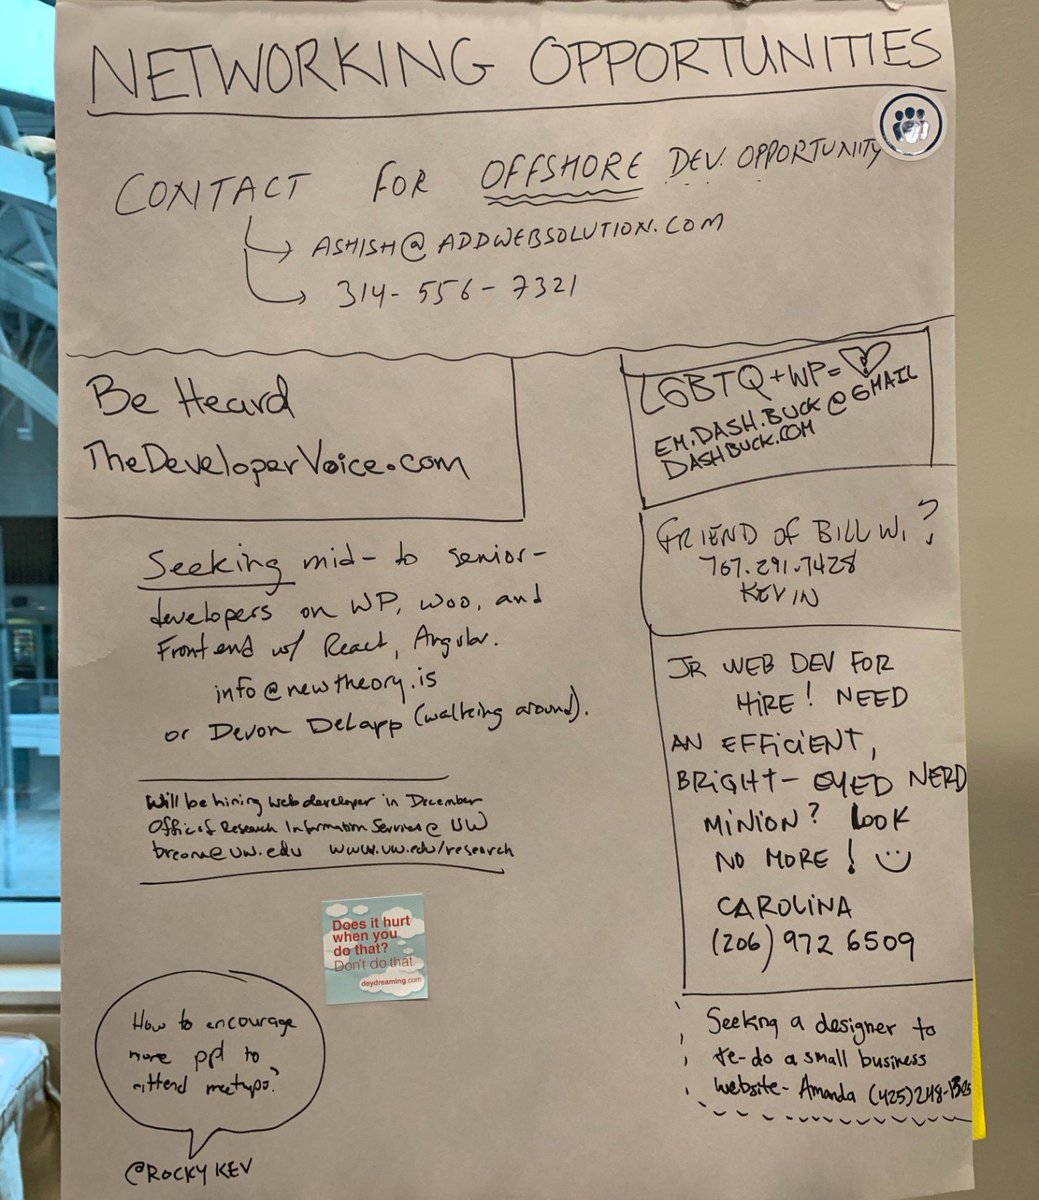 NETWORKING OPPORTUNITIES
CONTACT FOR OFFSHORE DEV. OPPORTUNITY
ASHISH@ADDWEBSOLUTION.COM
314-556-7321
Be Heard
TheDeveloperVoice.com
LGBTQ+WP=
EM.DASH.BUCK@GMAIL
DASHBUCK.COM
FRIEND OF BILL W.?
767.291.7428
KEVIN
Seeking mid- to senior-
developers on WP, Woo, and
Frontend w/ React, Angular.
info@newtheory.is
or Devon Delapp (walking around).
JR WEB DEV FOR
HIRE! NEED
AN EFFICIENT,
BRIGHT-EYED NERD
MINION? LOOK
NO MORE!
CAROLINA
(206) 972 6509
Will be hiring web developer in December
Office of Research Information Services @ UW
breona@uw.edu www.uw.edu/research
Does it hurt
when you
do that?
Don't do that.
deydreaming.com
How to encourage
more ppl to
attend meetups?
@ROCKY KEV
Seeking a designer to
re-do a small business
website- Amanda (425)248-